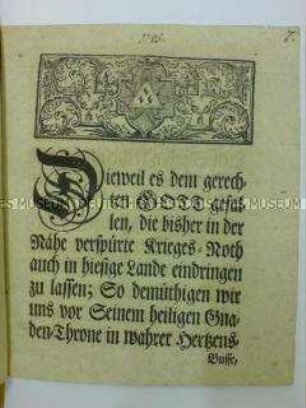 1745.
7.
Dieweil es dem gerech-
ten GOTT gefal-
len, die bisher in der
Nähe verspürte Krieges-Noth
auch in hiesige Lande eindringen
zu lassen; So demüthigen wir
uns vor Seinem heiligen Gna-
den-Throne in wahrer Hertzens-
Busse,